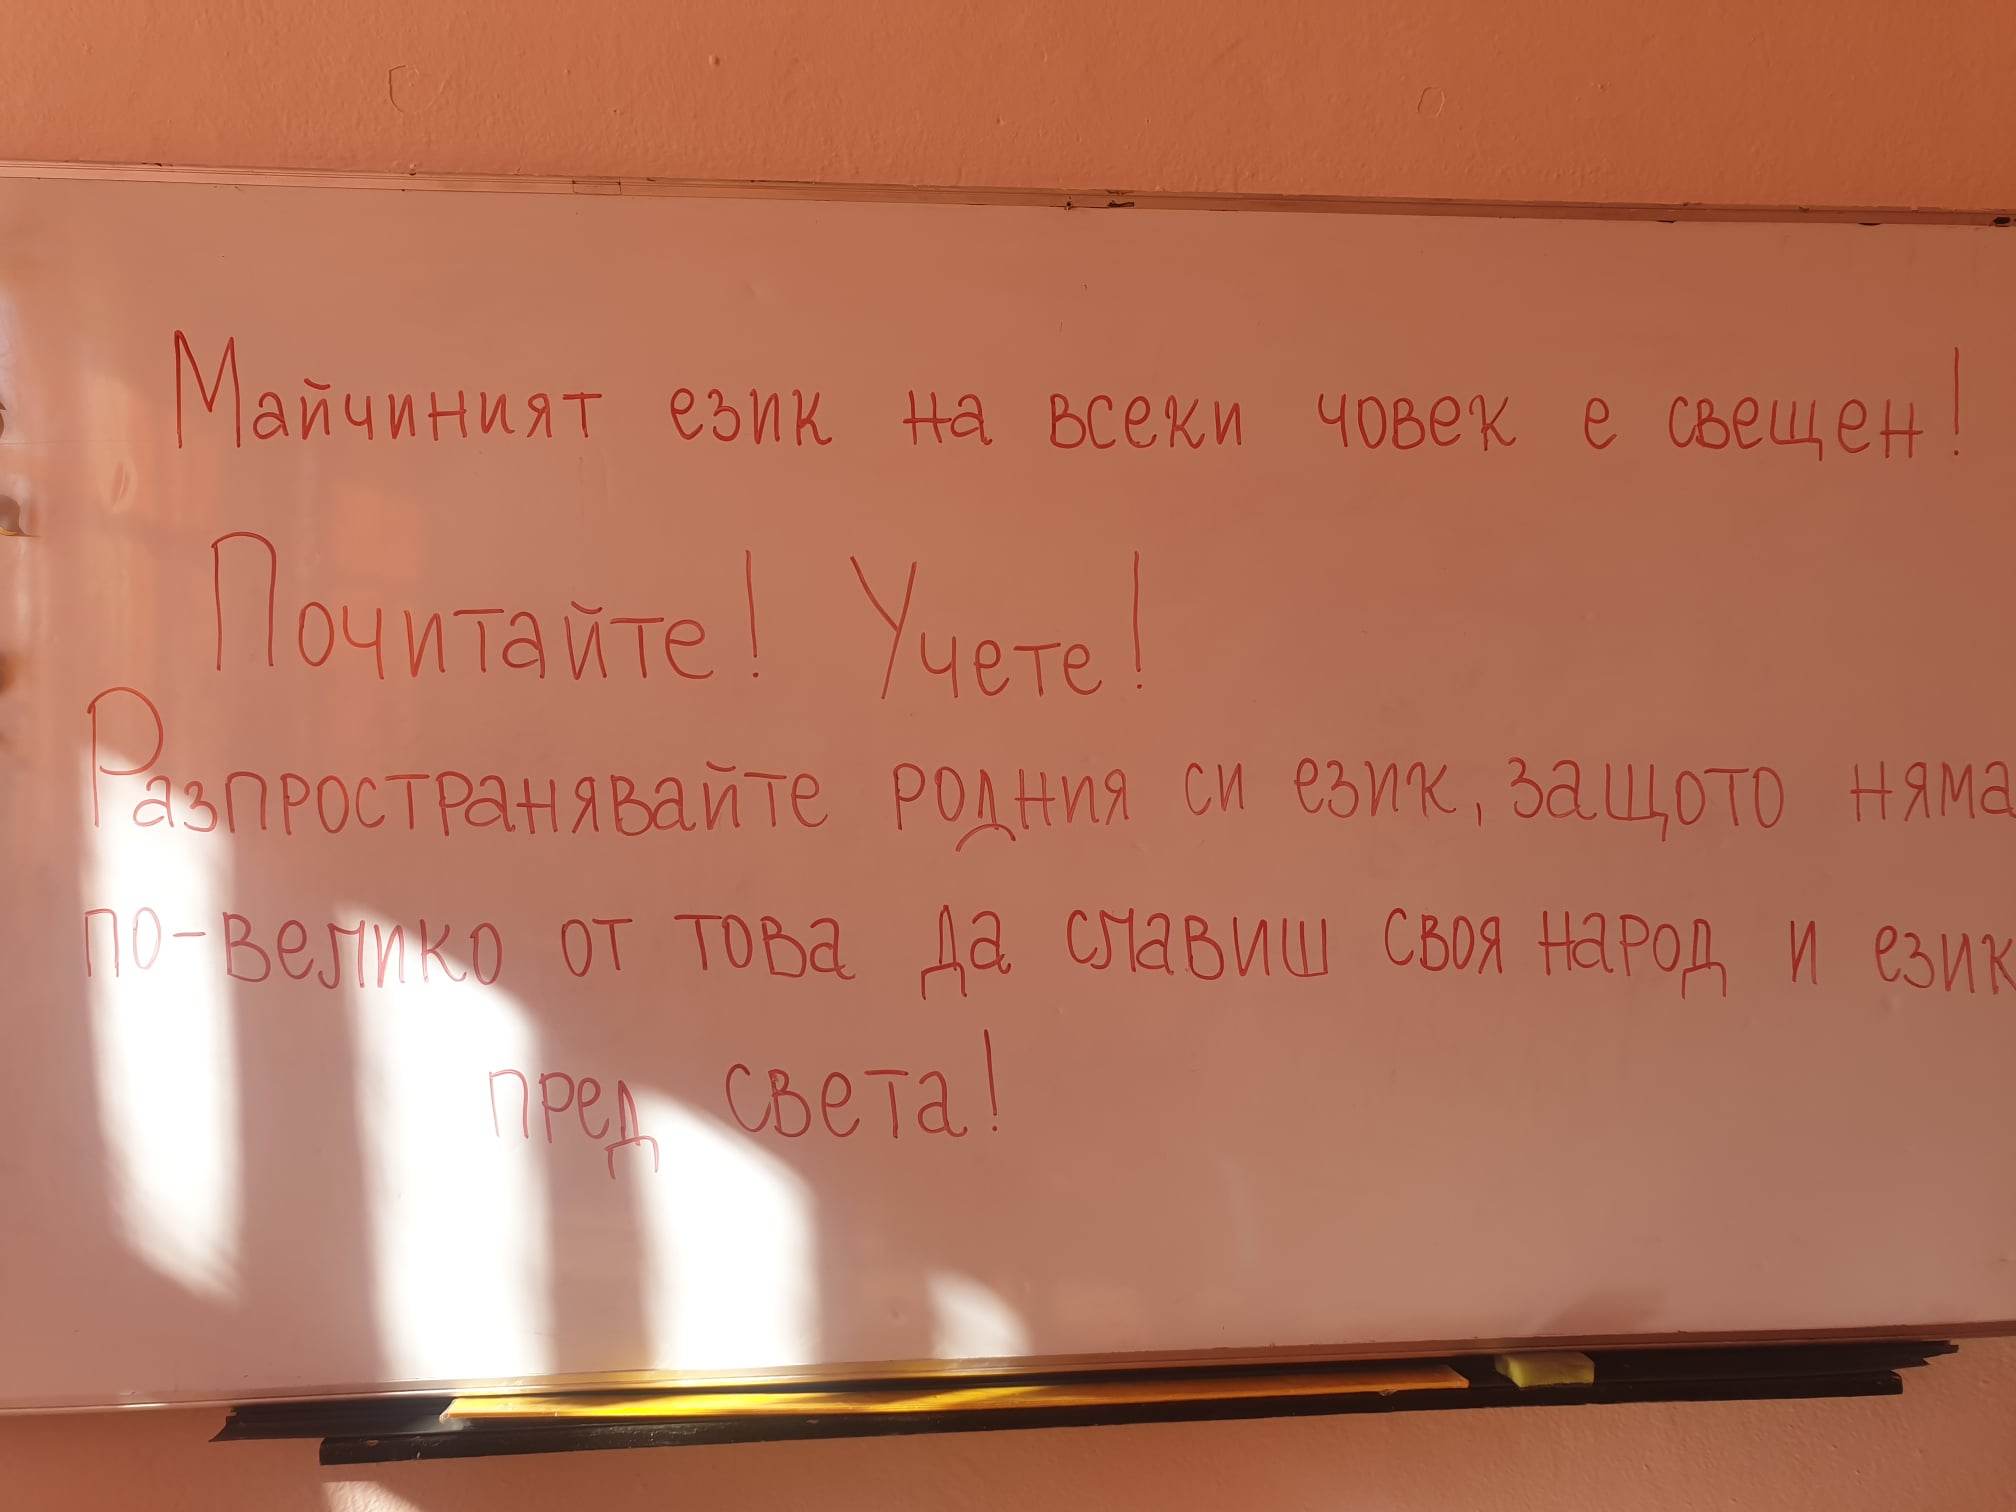 Майчиният език на всеки човек е свещен!
Почитайте! Учете!
Разпространявайте родния си език, защото няма
по-велико от това да славиш своя народ и език
пред света!